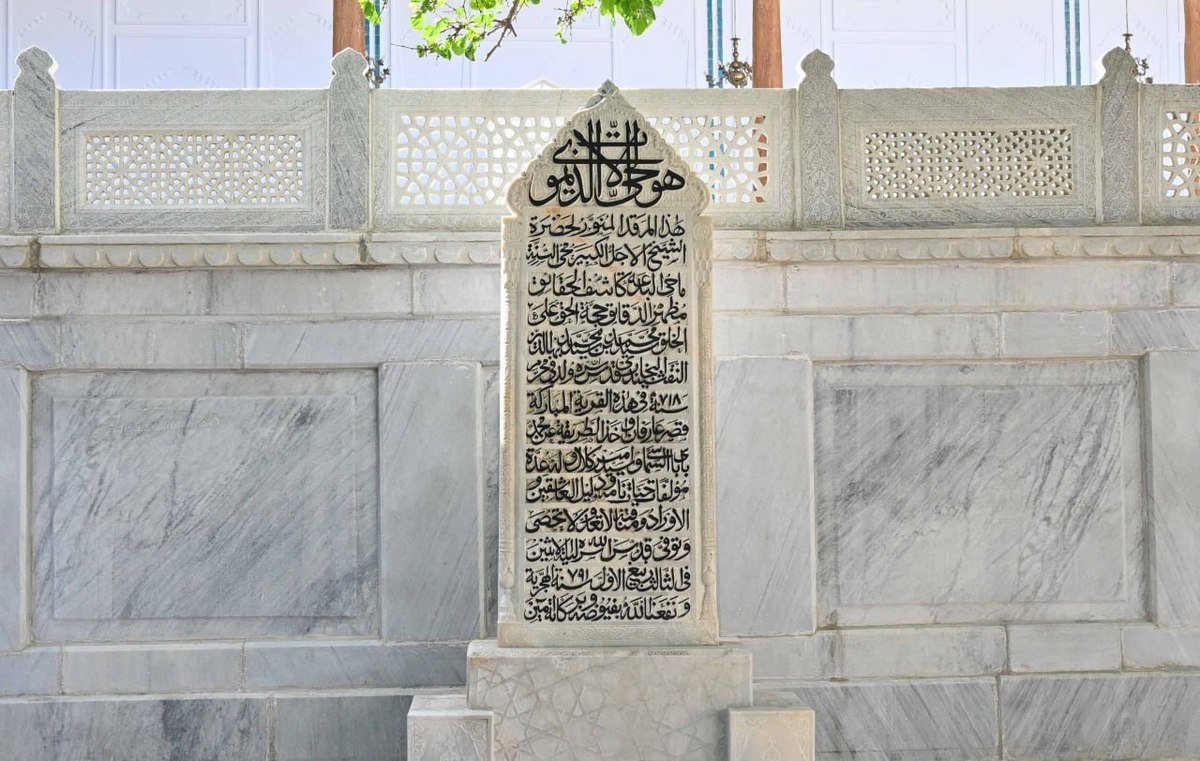 هو الحي الذي لا يموت
هذا المرقد المنور لحضرة
الشيخ الاجل الكبير محي السنة
ماحي البدعة كاشف الحقائق
مظهر الدقائق حجة الحق على
الخلق محمد بن محمد بهاء الدين
النقشبندي قدس سره ولد في محرم
سنة ٧١٨ في هذه القرية المباركة
قصر عارفان واخذ الطريقة عن محمد
بابا السماسي وامير كلال وله عدة
مؤلفات حيات نامه و دليل العاشقين و
الاوراد ومناقبه لا تعد ولا تحصى
وتوفي قدس الله سره ليلة الاثنين
في الثالث ربيع الاول سنة ٧٩١ الهجرية
ونفعنا الله بفيوضه وبركاته آمين